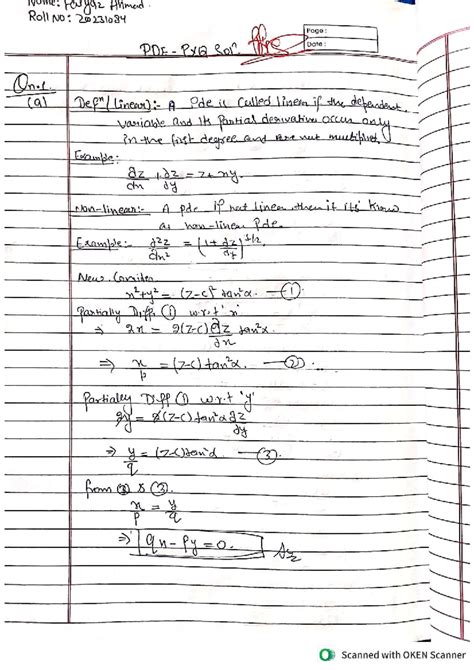 Name: Fayyaz Ahmed.
Roll No: 20231084
Page:
Date:
PDE - PYQ Solⁿ.
Qn.1.
(a) Defⁿ (Linear):- A Pde is called linear if the dependent
variable and its partial derivative occur only
in the first degree and are not multiplied.
Example:
∂z/∂x + ∂z/∂y = z + xy.
Non-linear:- A pde if not linear then it its' know
as non-linear Pde.
Example:- ∂²z/∂x² = (1 + ∂z/∂y)^1/2
Now. Consider
x²+y² = (z-c)² tan²α. — (1)
Partially Diff (1) w.r.t 'x'
⇒ 2x = 2(z-c) ∂z/∂x tan²α.
⇒ x/p = (z-c) tan²α. — (2)
Partialey Diff (1) w.r.t 'y'
2y = 2(z-c) tan²α ∂z/∂y
⇒ y/q = (z-c) tan²α — (3).
from (2) & (3).
x/p = y/q
⇒ qx - py = 0.
Scanned with OKEN Scanner